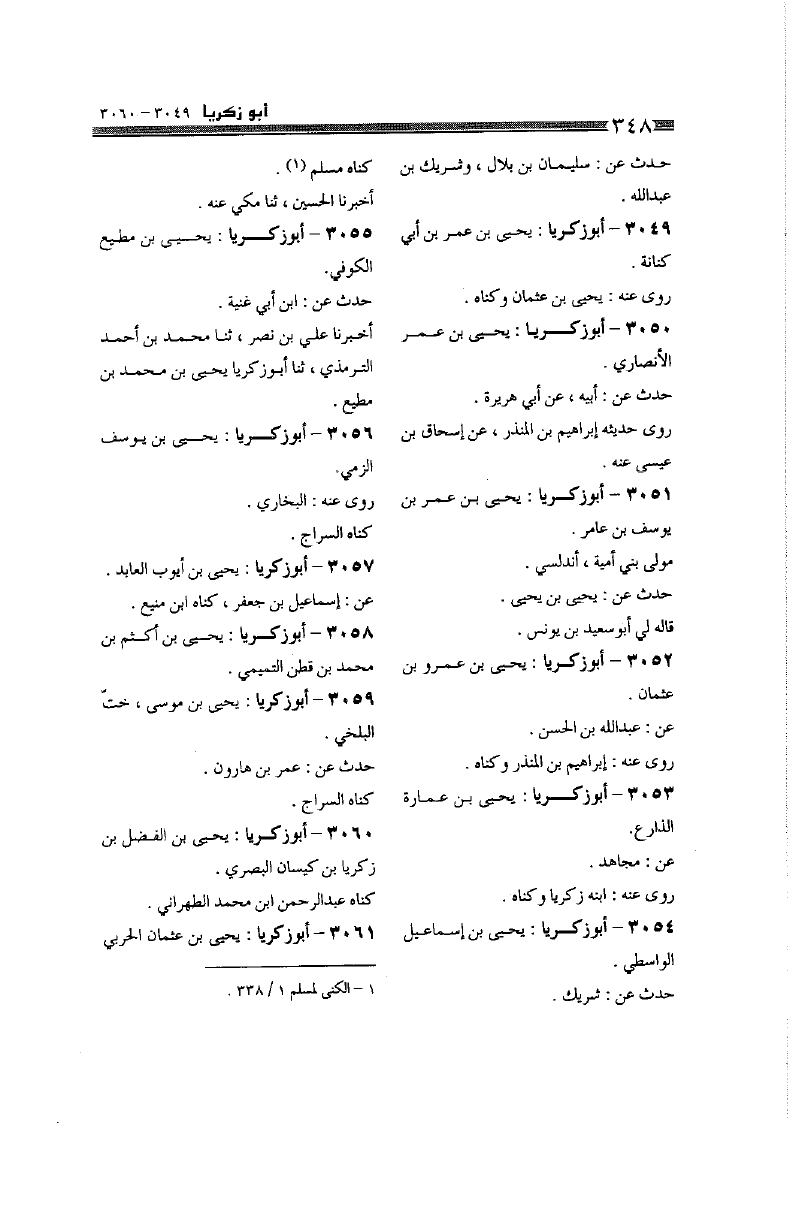 أبو زكريا ٣٠٤٩ - ٣٠٦٠
٣٤٨
حدث عن : سليمان بن بلال ، وشريك بن
عبدالله .
٣٠٤٩ - أبوزكريا : يحيى بن عمر بن أبي
كنانة .
روى عنه : يحيى بن عثمان وكناه .
٣٠٥٠ - أبوزكريا : يحيى بن عمر
الأنصاري .
حدث عن : أبيه ، عن أبي هريرة .
روى حديثه إبراهيم بن المنذر ، عن إسحاق بن
عيسى عنه .
٣٠٥١ - أبوزكريا : يحيى بن عمر بن
يوسف بن عامر .
مولى بني أمية ، أندلسي .
حدث عن : يحيى بن يحيى .
قاله لي أبوسعيد بن يونس .
٣٠٥٢ - أبوزكريا : يحيى بن عمرو بن
عثمان .
عن : عبدالله بن الحسن .
روى عنه : إبراهيم بن المنذر وكناه .
٣٠٥٣ - أبوزكريا : يحيى بن عمارة
الذارع.
عن : مجاهد .
روى عنه : ابنه زكريا وكناه .
٣٠٥٤ - أبوزكريا : يحيى بن إسماعيل
الواسطي .
حدث عن : شريك .
كناه مسلم (١) .
أخبرنا الحسين ، ثنا مكي عنه .
٣٠٥٥ - أبوزكريا : يحيى بن مطيع
الكوفي.
حدث عن : ابن أبي غنية .
أخبرنا علي بن نصر ، ثنا محمد بن أحمد
الترمذي ، ثنا أبوزكريا يحيى بن محمد بن
مطيع .
٣٠٥٦ - أبوزكريا : يحيى بن يوسف
الزمي.
روى عنه : البخاري .
كناه السراج .
٣٠٥٧ - أبوزكريا : يحيى بن أيوب العابد .
عن : إسماعيل بن جعفر ، كناه ابن منيع .
٣٠٥٨ - أبوزكريا : يحيى بن أكثم بن
محمد بن قطن التميمي .
٣٠٥٩ - أبوزكريا : يحيى بن موسى ، ختّ
البلخي .
حدث عن : عمر بن هارون .
كناه السراج .
٣٠٦٠ - أبوزكريا : يحيى بن الفضل بن
زكريا بن كيسان البصري .
كناه عبدالرحمن ابن محمد الطهراني .
٣٠٦١ - أبوزكريا : يحيى بن عثمان الحربي
١ - الكنى لمسلم ١ / ٣٣٨ .